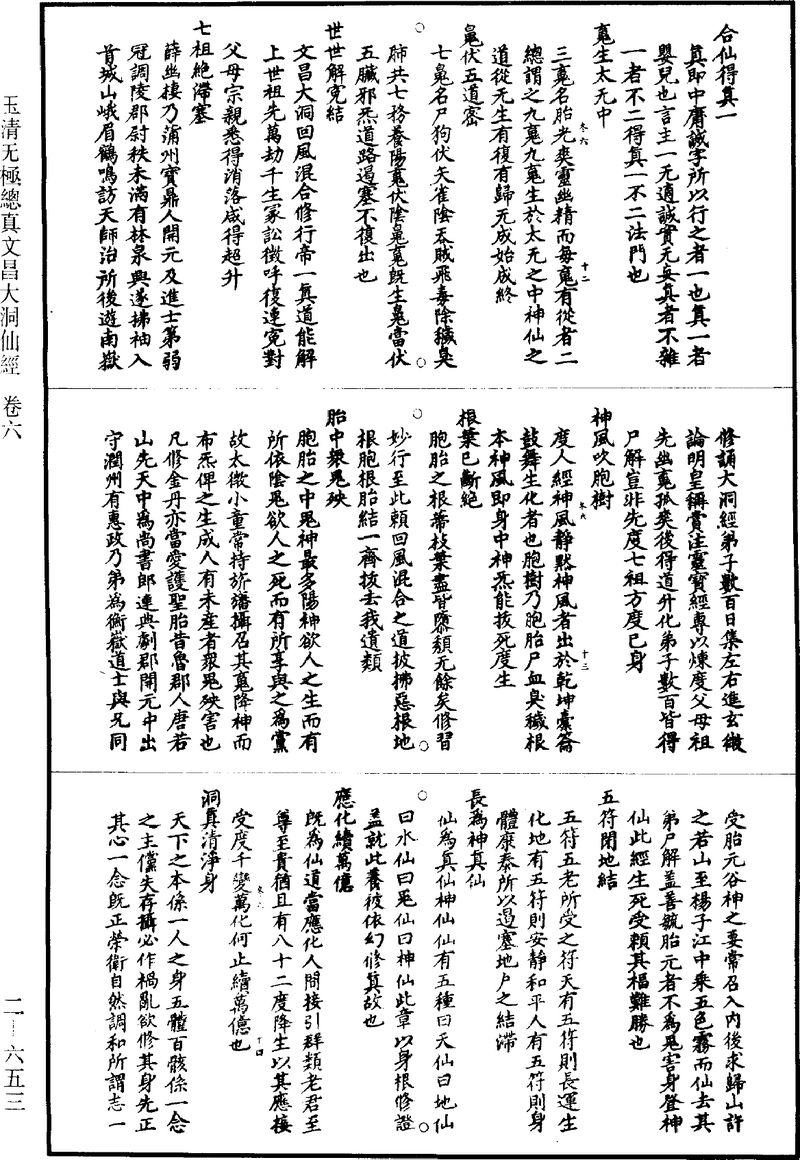 合仙得真一
真即中庸誠字所以行之者一也真一者
嬰兒也言主一无適誠實无妄真者不雜
一者不二得真一不二法門也
䰟生太无中
三䰟名胎光爽靈幽精而每䰟有從者二
總謂之九䰟九䰟生於太无之中神仙之
道從无生有復有歸无成始成終
鬼伏五道宻
七鬼名尸狗伏矢雀陰吞賊飛毒除穢臭
肺共七務養陽䰟伏陰鬼䰟既生鬼當伏
五臟邪炁道路遏塞不復出也
世世解寃結
文昌大洞回風混合修行帝一真道能解
上世祖先萬劫千生冢訟徵呼復連寃對
父母宗親悉得消落咸得超升
七祖絶滯塞
薛幽棲乃蒲州寶鼎人開元及進士第弱
冠調陵郡尉秩未滿有林泉興遂拂袖入
首城山峨眉鶴鳴訪天師治所後遊南嶽
修誦大洞經弟子數百日集左右進玄微
論明皇稱賞注靈寶經專以煉度父母祖
先幽䰟孤爽後得道升化弟子數百皆得
尸解豈非先度七祖方度已身
神風吹胞樹
度人經神風靜默神風者出於乾坤橐籥
鼓舞生化者也胞樹乃胞胎尸血臭穢根
本神風即身中神炁能拔死度生
根葉已斷絶
胞胎之根蒂枝葉盡皆隳頽无餘矣修習
妙行至此頼回風混合之道披拂惡根地
根胞根胎結一齊拔去我遺類
胎中衆鬼殃
胞胎之中鬼神最多陽神欲人之生而有
所依陰鬼欲人之死而有所享與之爲黨
故太微小童常持旂旛攝召其䰟降神而
布炁俾之生成人有未産者衆鬼殃害也
凡修金丹亦當愛護聖胎昔魯郡人唐若
山先天中爲尚書郎連典劇郡開元中出
守潤州有惠政乃弟爲衡嶽道士與兄同
受胎元谷神之要常召入内後求歸山許
之若山至楊子江中乘五色霧而仙去其
弟尸解蓋善毓胎元者不爲鬼害身登神
仙此經生死受頼其福難勝也
五符閉地結
五符五老所受之符天有五符則長運生
化地有五符則安静和平人有五符則身
體康泰所以遏塞地戶之結滯
長爲神真仙
仙爲真仙神仙仙有五種曰天仙曰地仙
曰水仙曰鬼仙曰神仙此章以身根修證
益就此養彼依幻修真故也
應化續萬億
既爲仙道當應化人間接引群類老君至
尊至貴猶且有八十二度降生以其應接
受度千變萬化何止續萬億也
洞真清淨身
天下之本係一人之身五體百骸係一念
之主儻失存攝必作禍亂欲修其身先正
其心一念既正榮衛自然調和所謂志一
卷六
十二
卷六
十三
卷六
十四
玉清无極總真文昌大洞仙經 卷六
二一六五三